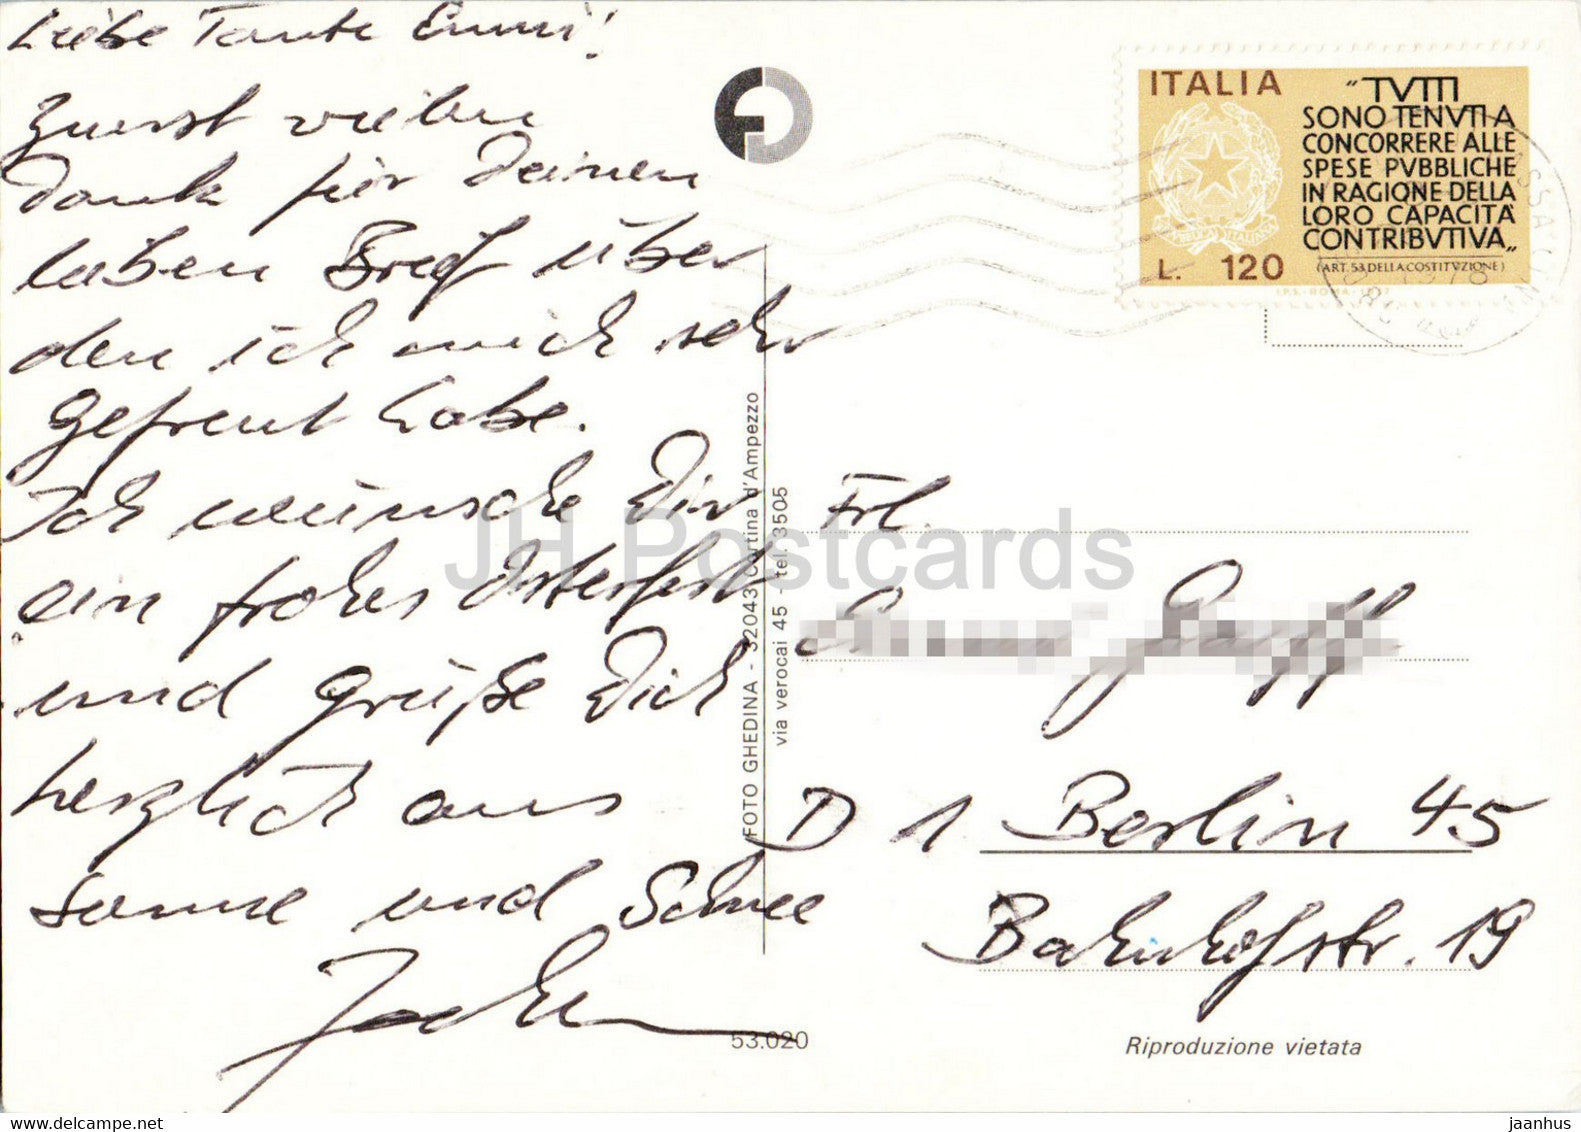 Liebe Tante Emmi!
Zuerst vielen
Dank für Deinen
lieben Brief über
den ich mich sehr
gefreut habe.
Ich wünsche Dir
ein frohes Osterfest
und grüße Dich
herzlich aus
Sonne und Schnee
ITALIA
"TVTTI
SONO TENVTI A
CONCORRERE ALLE
SPESE PVBBLICHE
IN RAGIONE DELLA
LORO CAPACITÀ
CONTRIBVTIVA„
(ART. 53 DELLA COSTITVZIONE)
L. 120
I.P.S.-ROMA-
FOTO GHEDINA - 32043 Cortina d'Ampezzo
via verocai 45 - tel. 3505
Frl.
D 1 Berlin 45
Bahnhofstr. 19
53.020
Riproduzione vietata
JH Postcards
www.delcampe.net
jaanhus